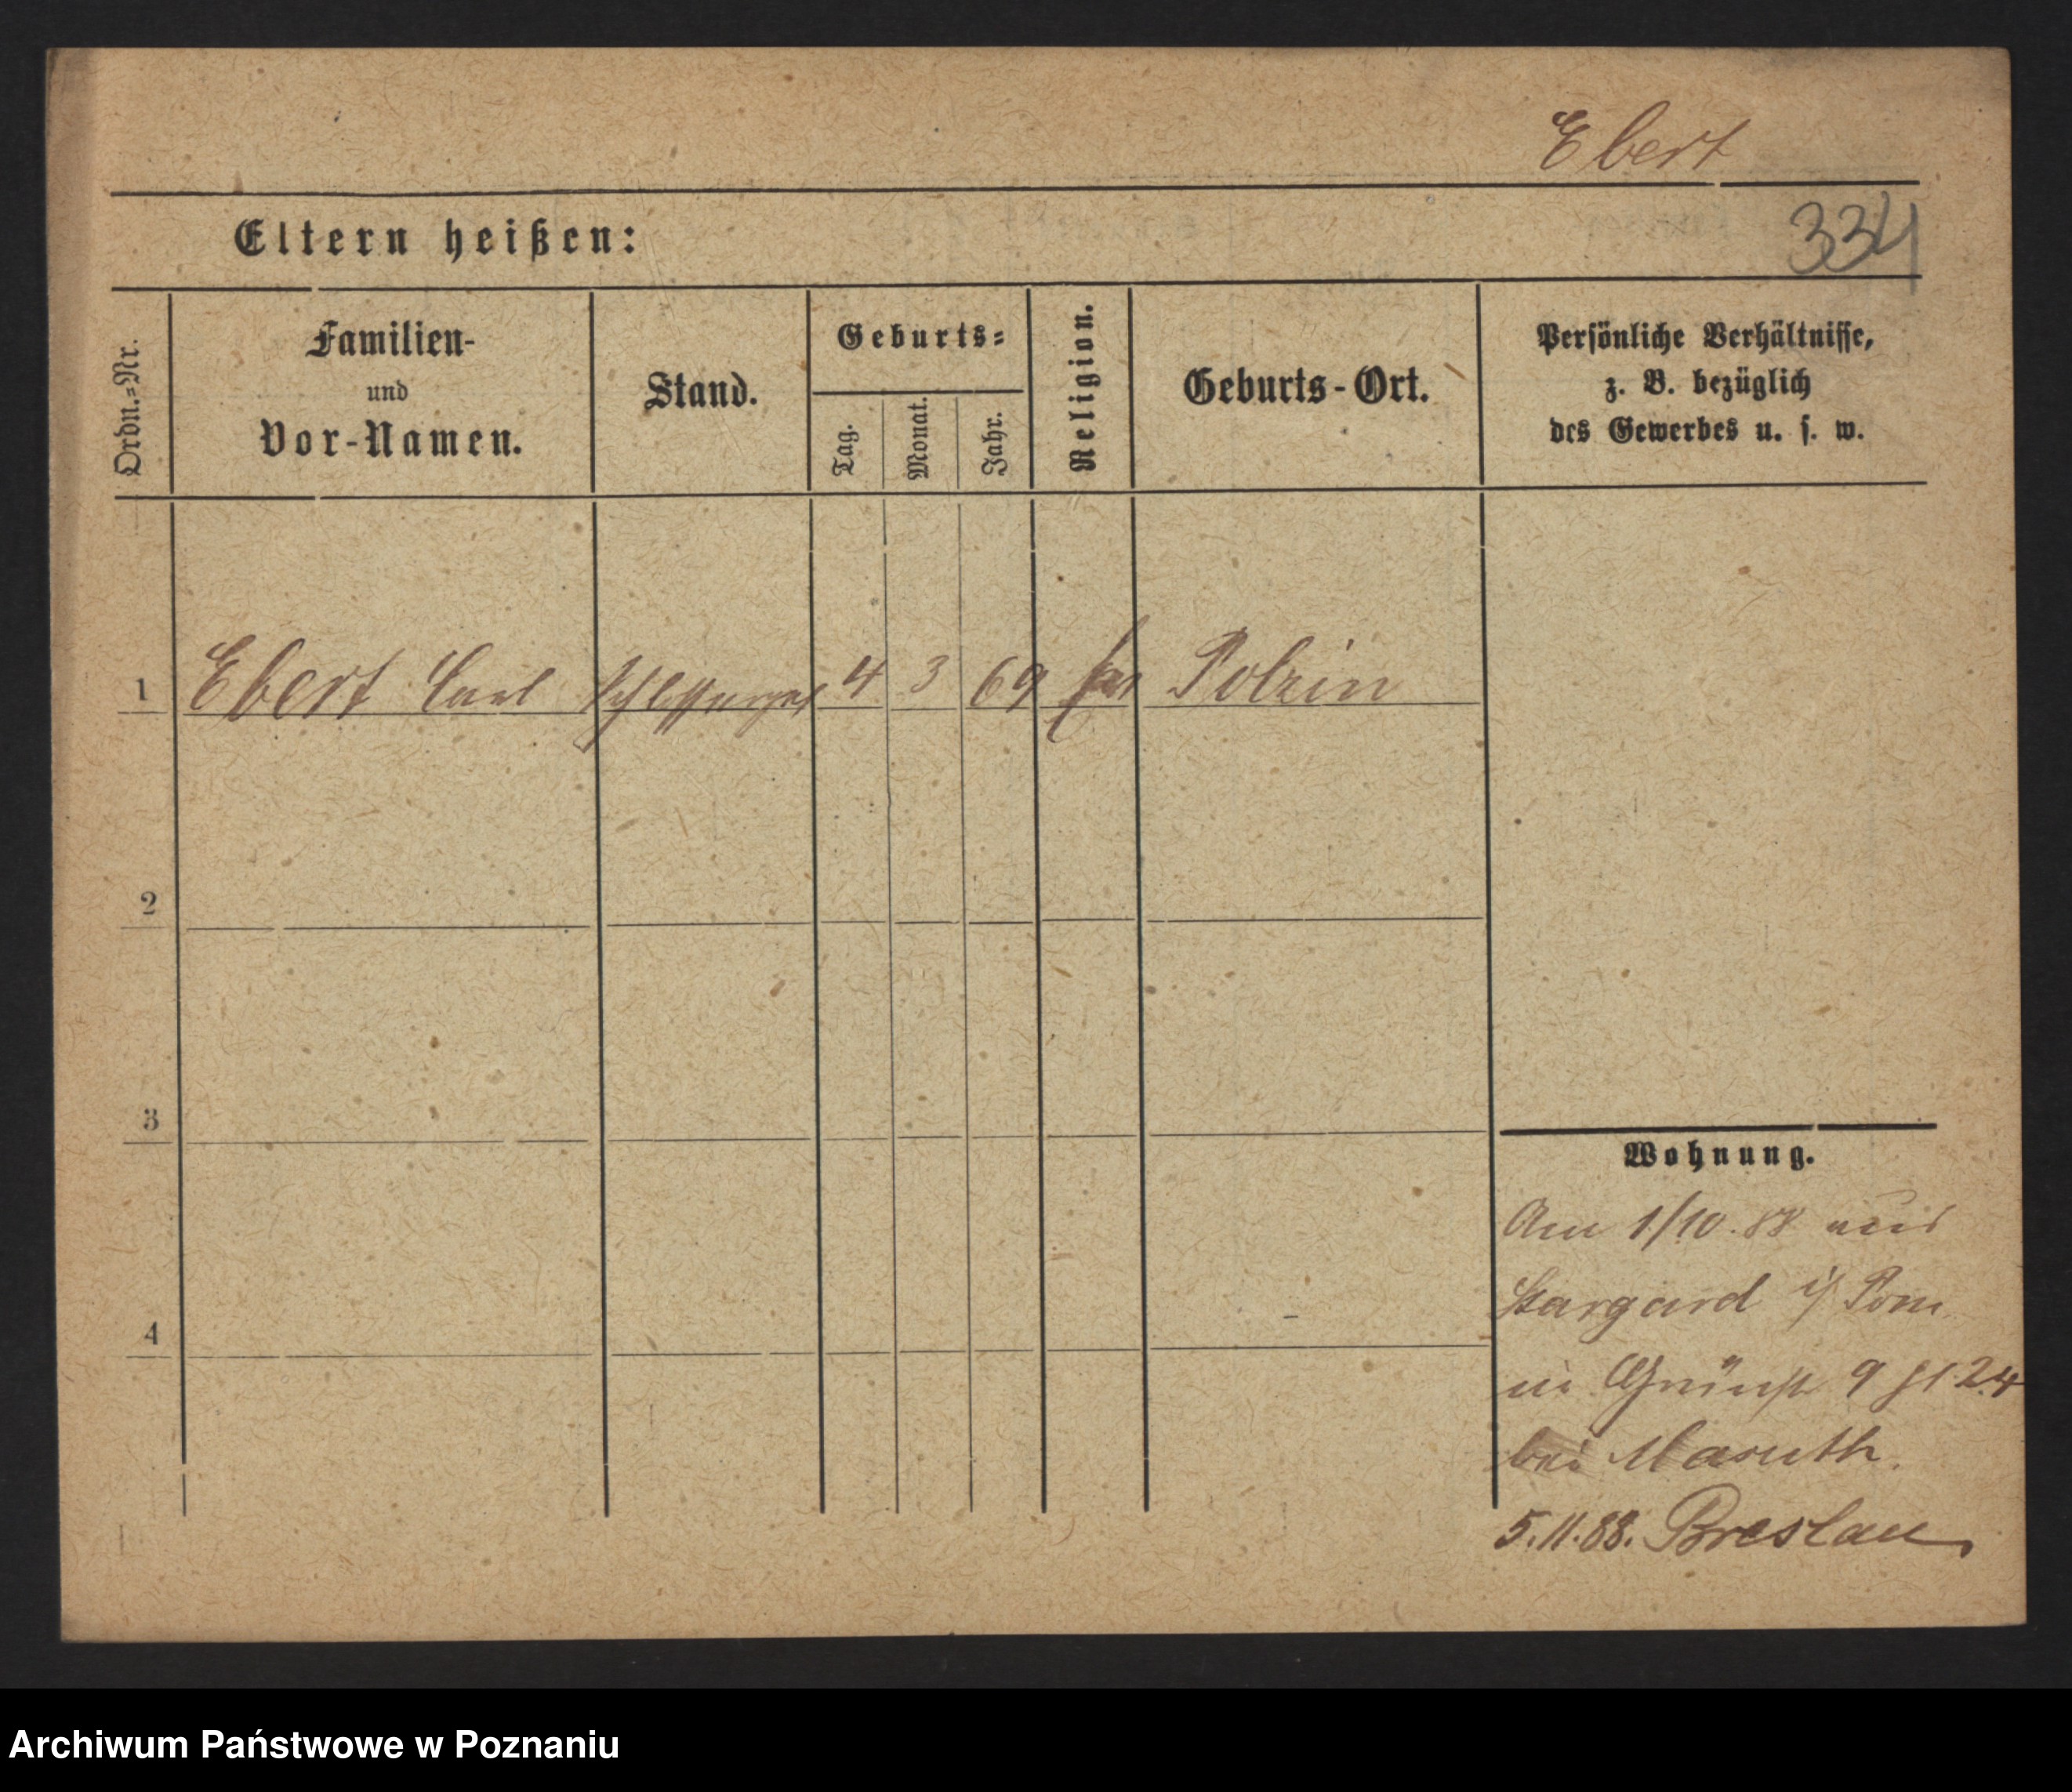 Ebert
334
Eltern heißen:
Ordn.-Nr.
Familien-
und
Vor-Namen.
Stand.
Geburts-
Tag.
Monat.
Jahr.
Religion.
Geburts-Ort.
Persönliche Verhältnisse,
z. B. bezüglich
des Gewerbes u. s. w.
1 Ebert Carl 4 3 69 Polzin
2
3
4
Wohnung.
Am 1/10. 88 aus
Stargard i/ Pom.
in 9
bei Masuth.
5.11.88. Breslau
Archiwum Państwowe w Poznaniu